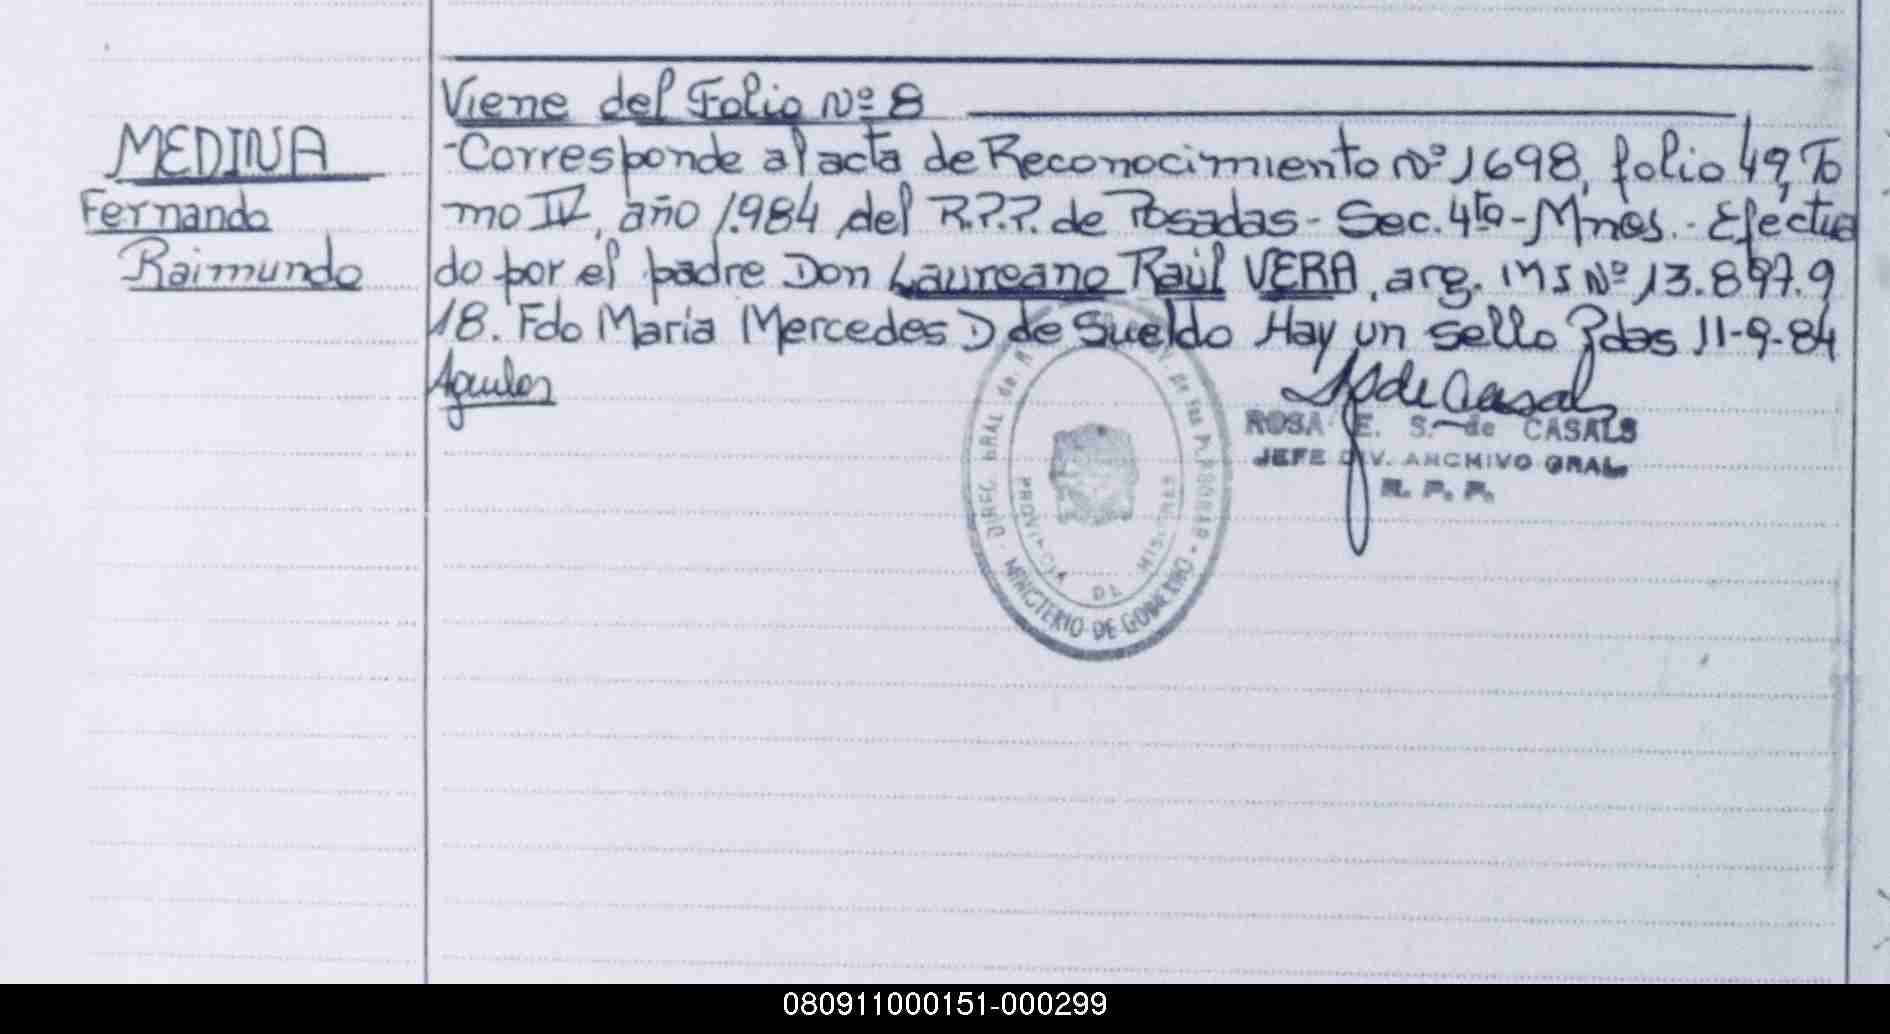 Viene del Folio Nº 8
MEDINA
Fernando
Raimundo
-Corresponde al acta de Reconocimiento Nº 1698, folio 49, To
mo IV, año 1.984, del R.P.P. de Posadas - Sec. 4ta - Mnes. - Efectua
do por el padre Don Laureano Raúl VERA, arg. M I Nº 13.897.9
18. Fdo Maria Mercedes D de Sueldo Hay un sello Pdas 11-9-84
ROSA E. S. de CASALS
JEFE DIV. ARCHIVO GRAL.
R. P. P.
MINISTERIO DE GOBIERNO
PROVINCIA DE MISIONES
080911000151-000299